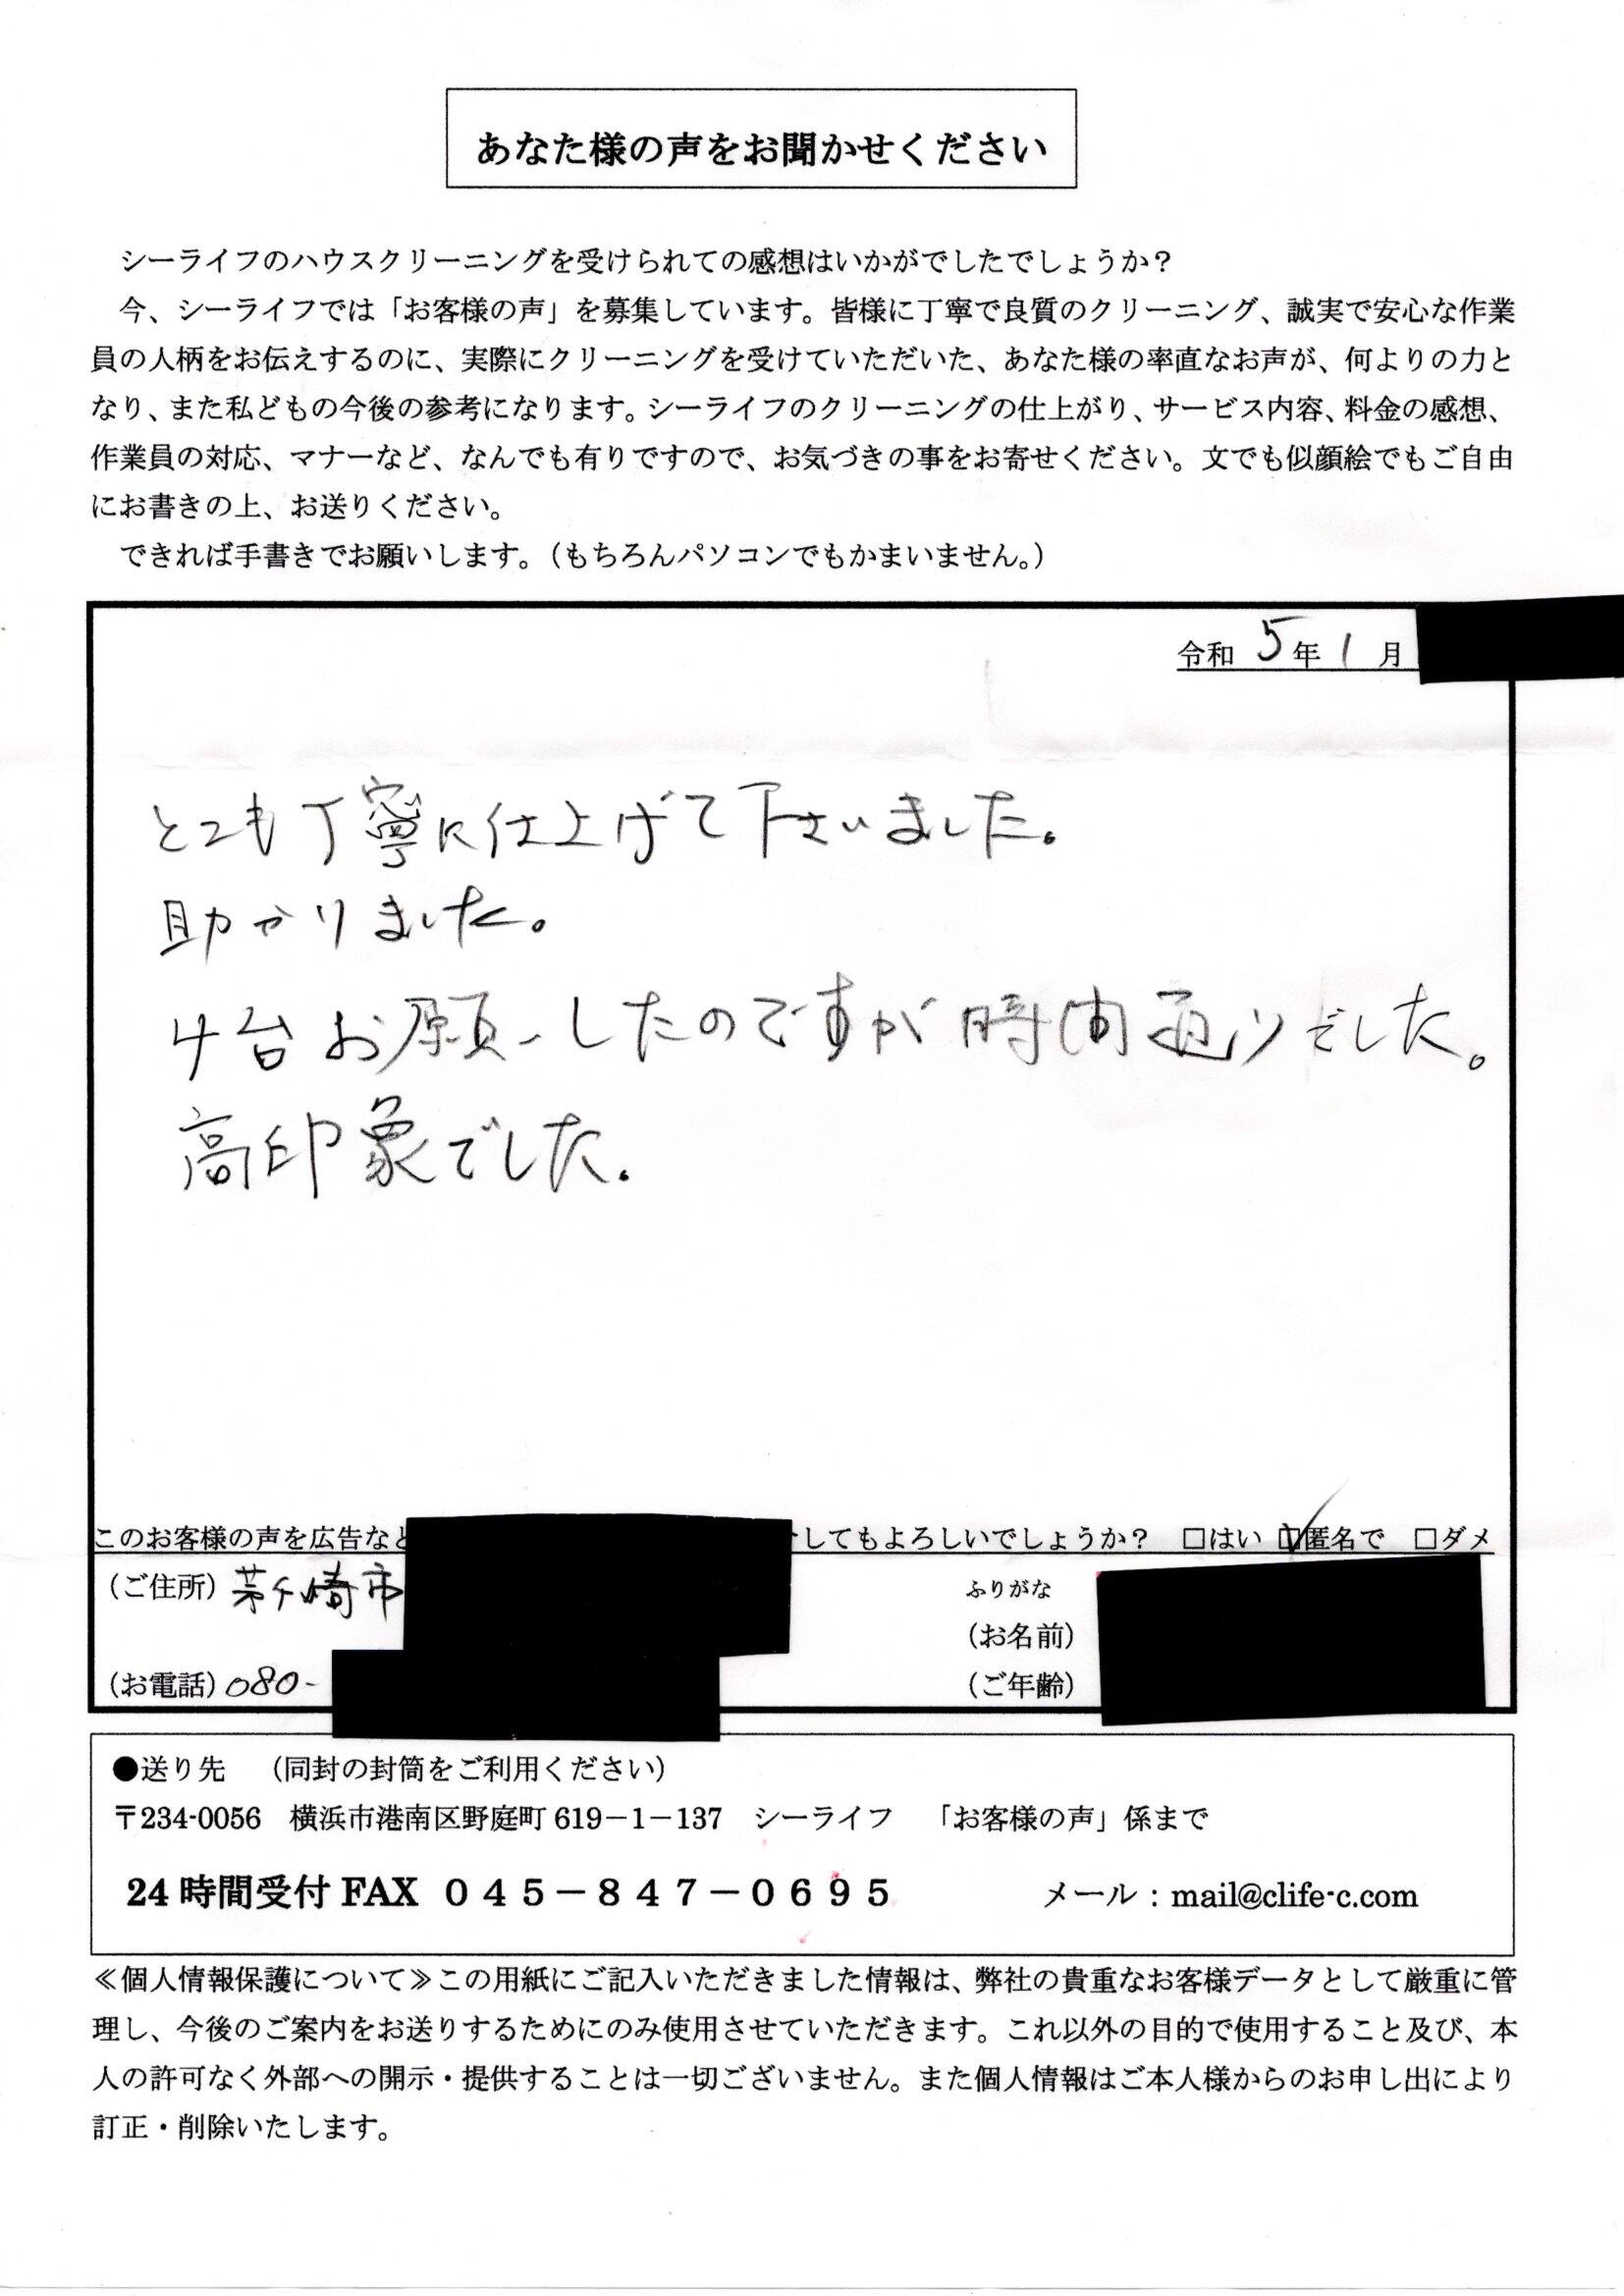 あなた様の声をお聞かせください
シーライフのハウスクリーニングを受けられての感想はいかがでしたでしょうか？
今、シーライフでは「お客様の声」を募集しています。皆様に丁寧で良質のクリーニング、誠実で安心な作業
員の人柄をお伝えするのに、実際にクリーニングを受けていただいた、あなた様の率直なお声が、何よりの力と
なり、また私どもの今後の参考になります。シーライフのクリーニングの仕上がり、サービス内容、料金の感想、
作業員の対応、マナーなど、なんでも有りですので、お気づきの事をお寄せください。文でも似顔絵でもご自由
にお書きの上、お送りください。
できれば手書きでお願いします。（もちろんパソコンでもかまいません。）
令和 5年 1月
とても丁寧に仕上げて下さいました。
助かりました。
4台お願いしたのですが時間通りでした。
高印象でした。
このお客様の声を広告など してもよろしいでしょうか？ □はい ☑匿名で □ダメ
（ご住所）茅ヶ崎市
ふりがな
（お名前）
（お電話）080-
（ご年齢）
●送り先 （同封の封筒をご利用ください）
〒234-0056 横浜市港南区野庭町619－1－137 シーライフ 「お客様の声」係まで
24時間受付FAX ０４５－８４７－０６９５ メール：mail@clife-c.com
≪個人情報保護について≫この用紙にご記入いただきました情報は、弊社の貴重なお客様データとして厳重に管
理し、今後のご案内をお送りするためにのみ使用させていただきます。これ以外の目的で使用すること及び、本
人の許可なく外部への開示・提供することは一切ございません。また個人情報はご本人様からのお申し出により
訂正・削除いたします。